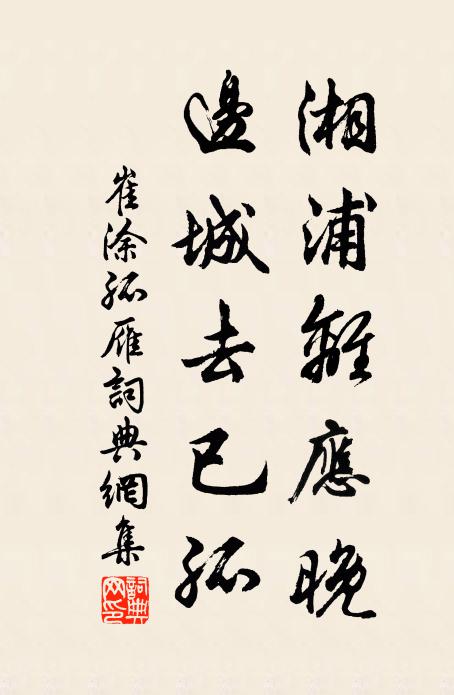 湘浦離應晚
邊城去已孤
崔塗孤雁詞典網集
詞典网印